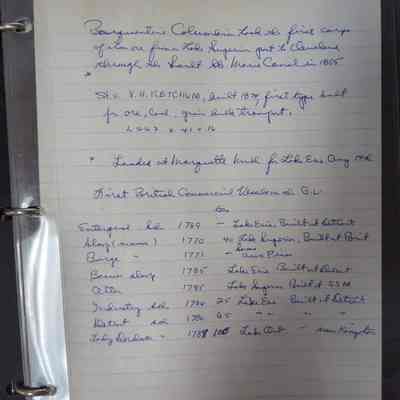 Barquentine Columbia took the first cargo
of iron ore from Lake Superior port to Cleveland
through the Sault Ste Marie Canal in 1855
*
Str. V.H. KETCHUM, built 1874, first type built
for ore, coal, grain bulk transport.
233 x 41 x 16
* Loaded at Marquette for Lake Erie Aug
First British Commercial Vessels on G.L.
Tons
Enterprise Sch 1769 – Lake Erie, Built at Detroit
Sloop (         ) 1770 40 Lake Superior, Built at Point
Barge " 1771 – aux Pins
Beaver sloop 1785 Lake Erie Built at Detroit
Otter 1785 Lake Superior Built at SSM
Industry Sch 1786 25 Lake Erie Built at Detroit
Detroit Sch 1786 65 " " "
Lady Dorchester " 1788 100 Lake Ont – near Kingston